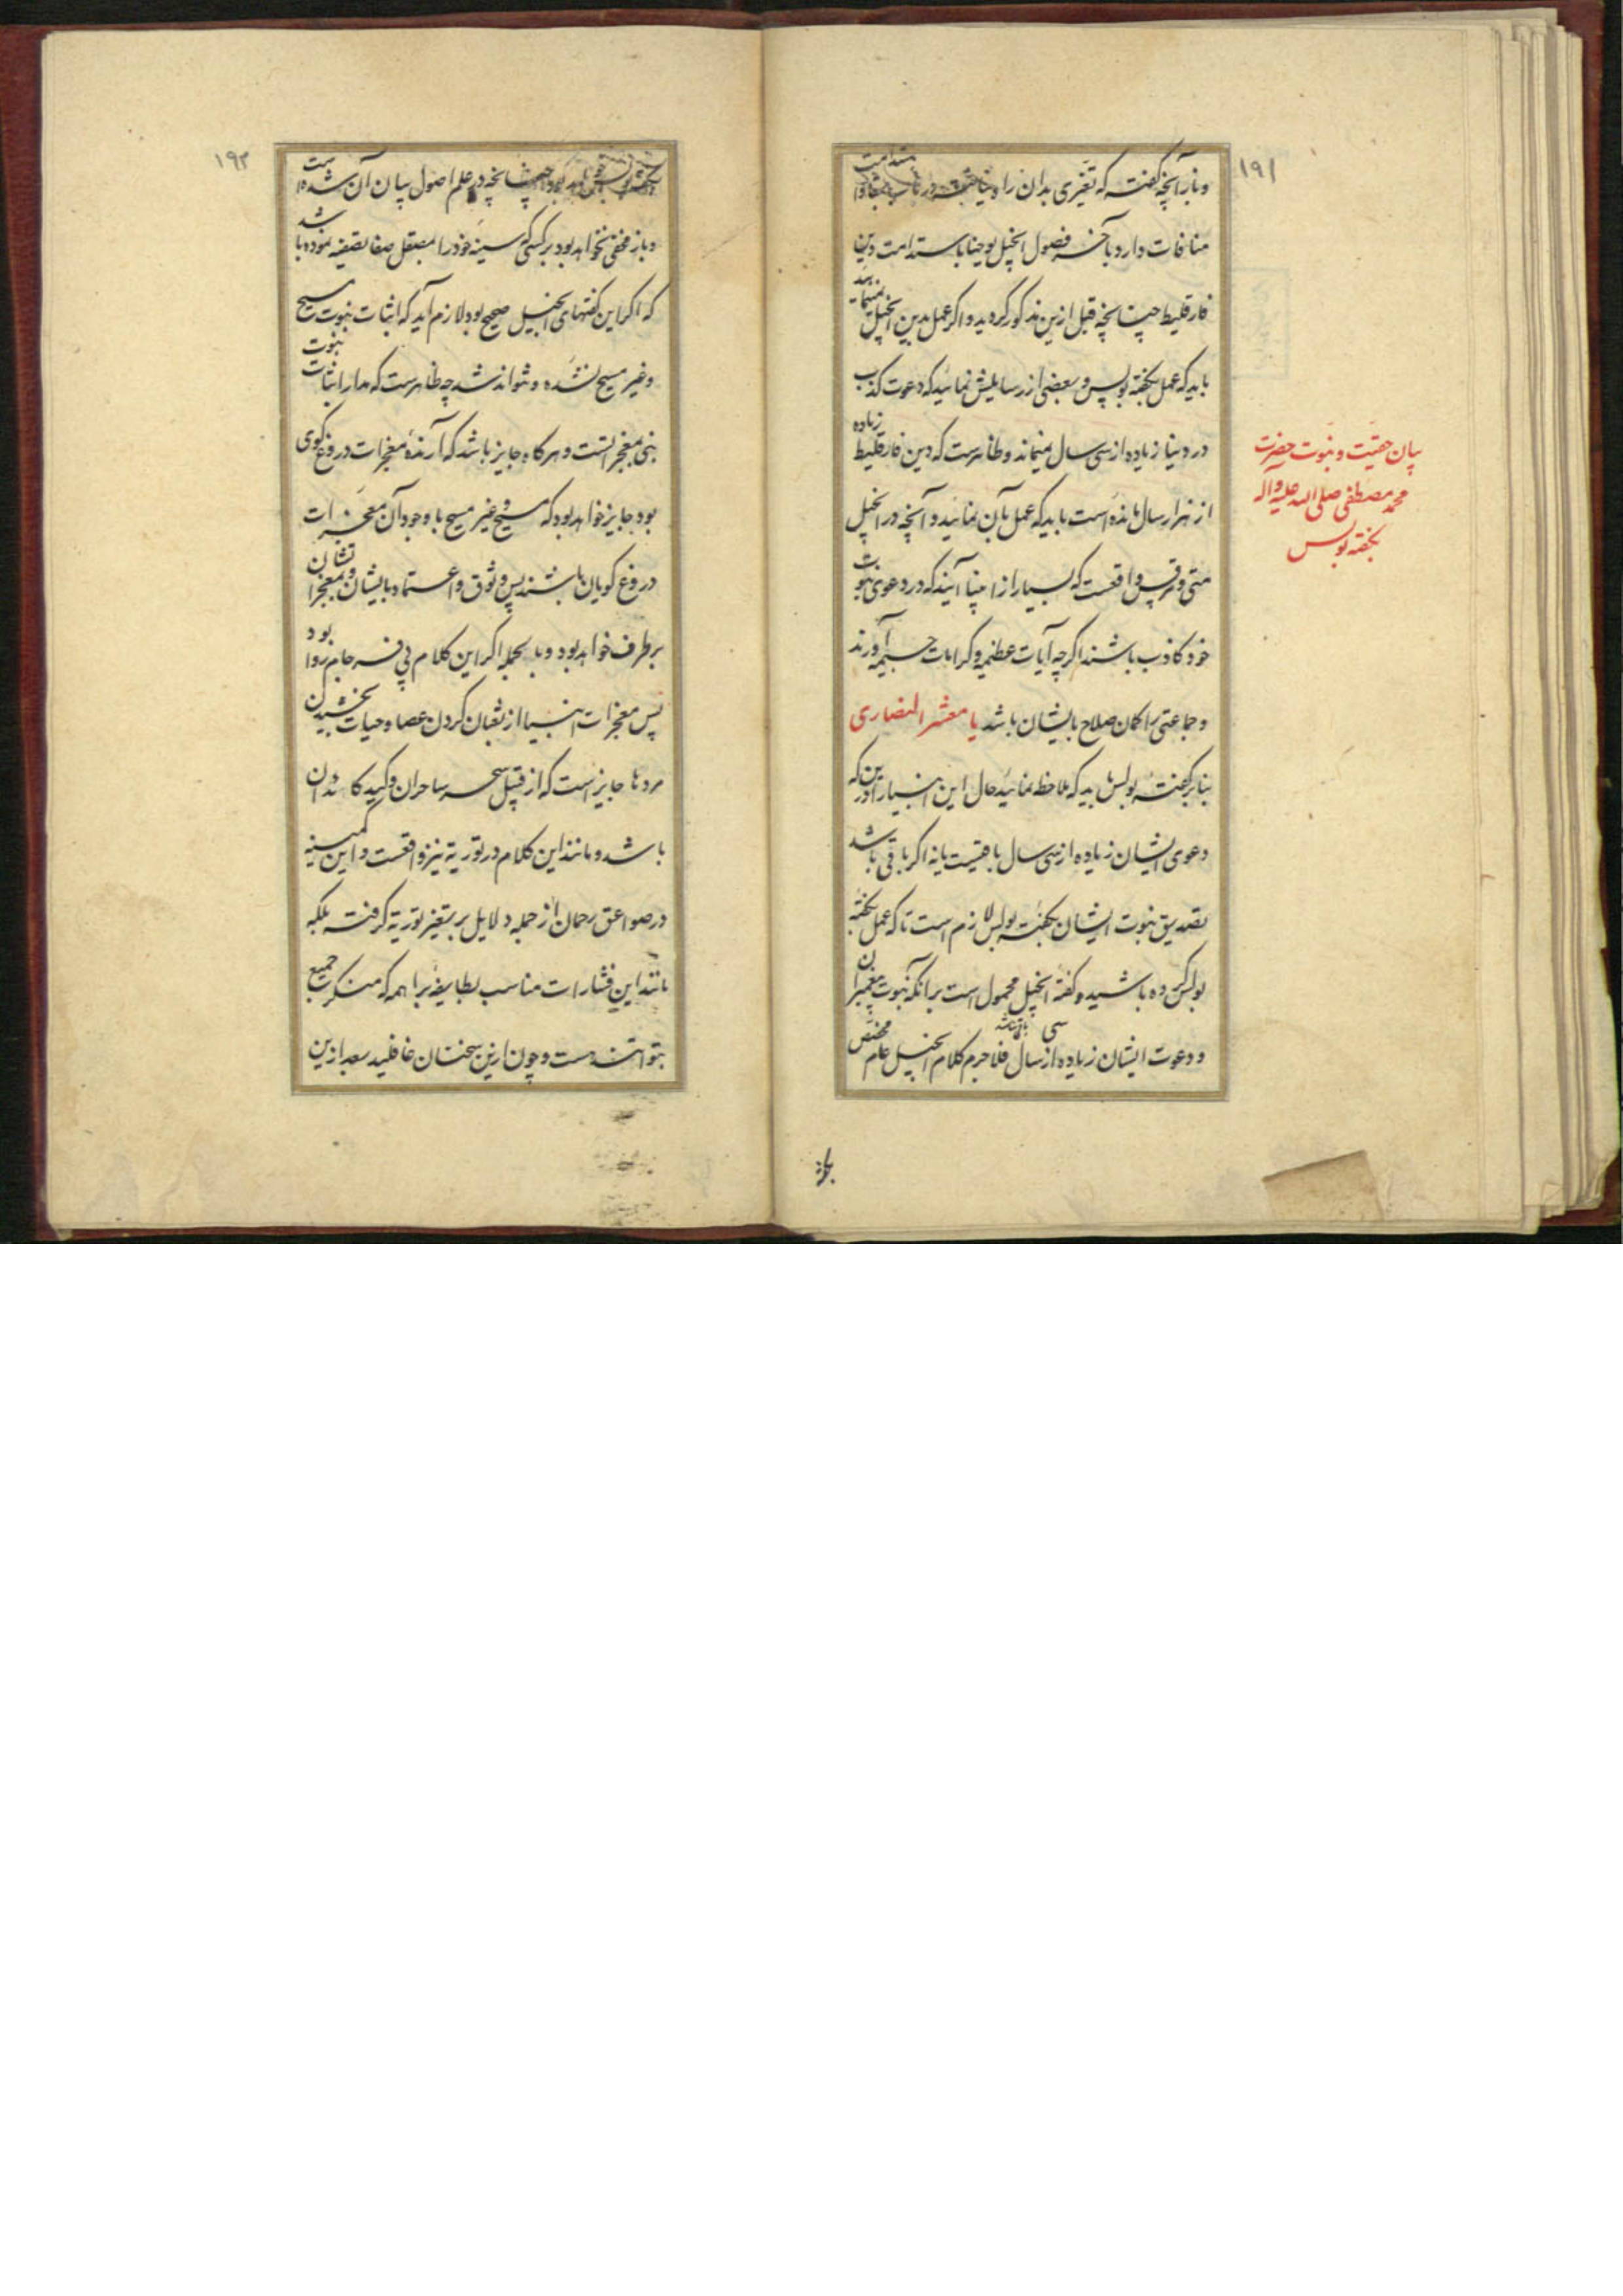 ۱۹۱
و باز آنچه گفته که تغیری بدان راه
منافات دارد با آخر فصول انجیل یوحنا با ستدامت دین
فارقلیط چنانچه قبل ازین مذکور گردید و اگر عمل بدین انجیل
باید که عمل بگفته بولس و بعضی از رسایلش نمائید که دعوت کذب
در دنیا زیاده از سی سال نمیماند و ظاهرست که دین فارقلیط زیاده
از هزار سال مانده است باید که عمل بآن نمائید و آنچه در انجیل
متی و مرقس واقعست که بسیار از انبیا آیند که در دعوی نبوت
خود کاذب باشند اگرچه آیات عظیمه و کرامات جسیمه آورند
و جماعتی را گمان صلاح بایشان باشد یا معشر النصاری
بنابر گفته بولس باید که ملاحظه نمائید حال این انبیا را که دین
دعوی ایشان زیاده از سی سال باقیست یا نه اگر باقی باشد
تصدیق نبوت ایشان بگفته بولس لازم است تا که عمل بگفته
بولس کرده باشید و گفته انجیل محمول است برانکه نبوت پیغمبران
و دعوت ایشان زیاده از سی سال فلاجرم کلام انجیل عام مخصص
بیان حقیت و نبوت حضرت
محمد مصطفی صلی الله علیه و آله
بگفته بولس
۱۹۲
چنانچه در علم اصول بیان آن شده است
و باز مخفی نخواهد بود بر کسی که سینه خود را بصیقل صفا تصفیه نموده باشد
که اگر این گفتهای انجیل صحیح بود لازم آید که اثبات نبوت مسیح
و غیر مسیح نشده و نتواند شد چه ظاهرست که مدار اثبات نبوت
نبی بمعجزاتست و هرگاه جایز باشد که آرنده معجزات دروغ گوی
بود جایز خواهد بود که مسیح و غیر مسیح با وجود آن معجزات
دروغ گویان باشند پس وثوق و اعتماد بایشان و بمعجزاتشان
برطرف خواهد بود و بالجمله اگر این کلام بی فرجام روا بود
پس معجزات انبیا از ثعبان کردن عصا و حیات بخشیدن
مردها جایز است که از قبیل سحر ساحران و کید کایدان
باشد و مانند این کلام در توریة نیز واقعست و این کمینه
در صواعق رحمان از جمله دلایل بر تغیر توریة گرفته بلکه
مانند این فشارات مناسب بطایفه براهمه که منکر جمیع
نبوات‌اند هست و چون ازین سخنان غافلید بعد ازین